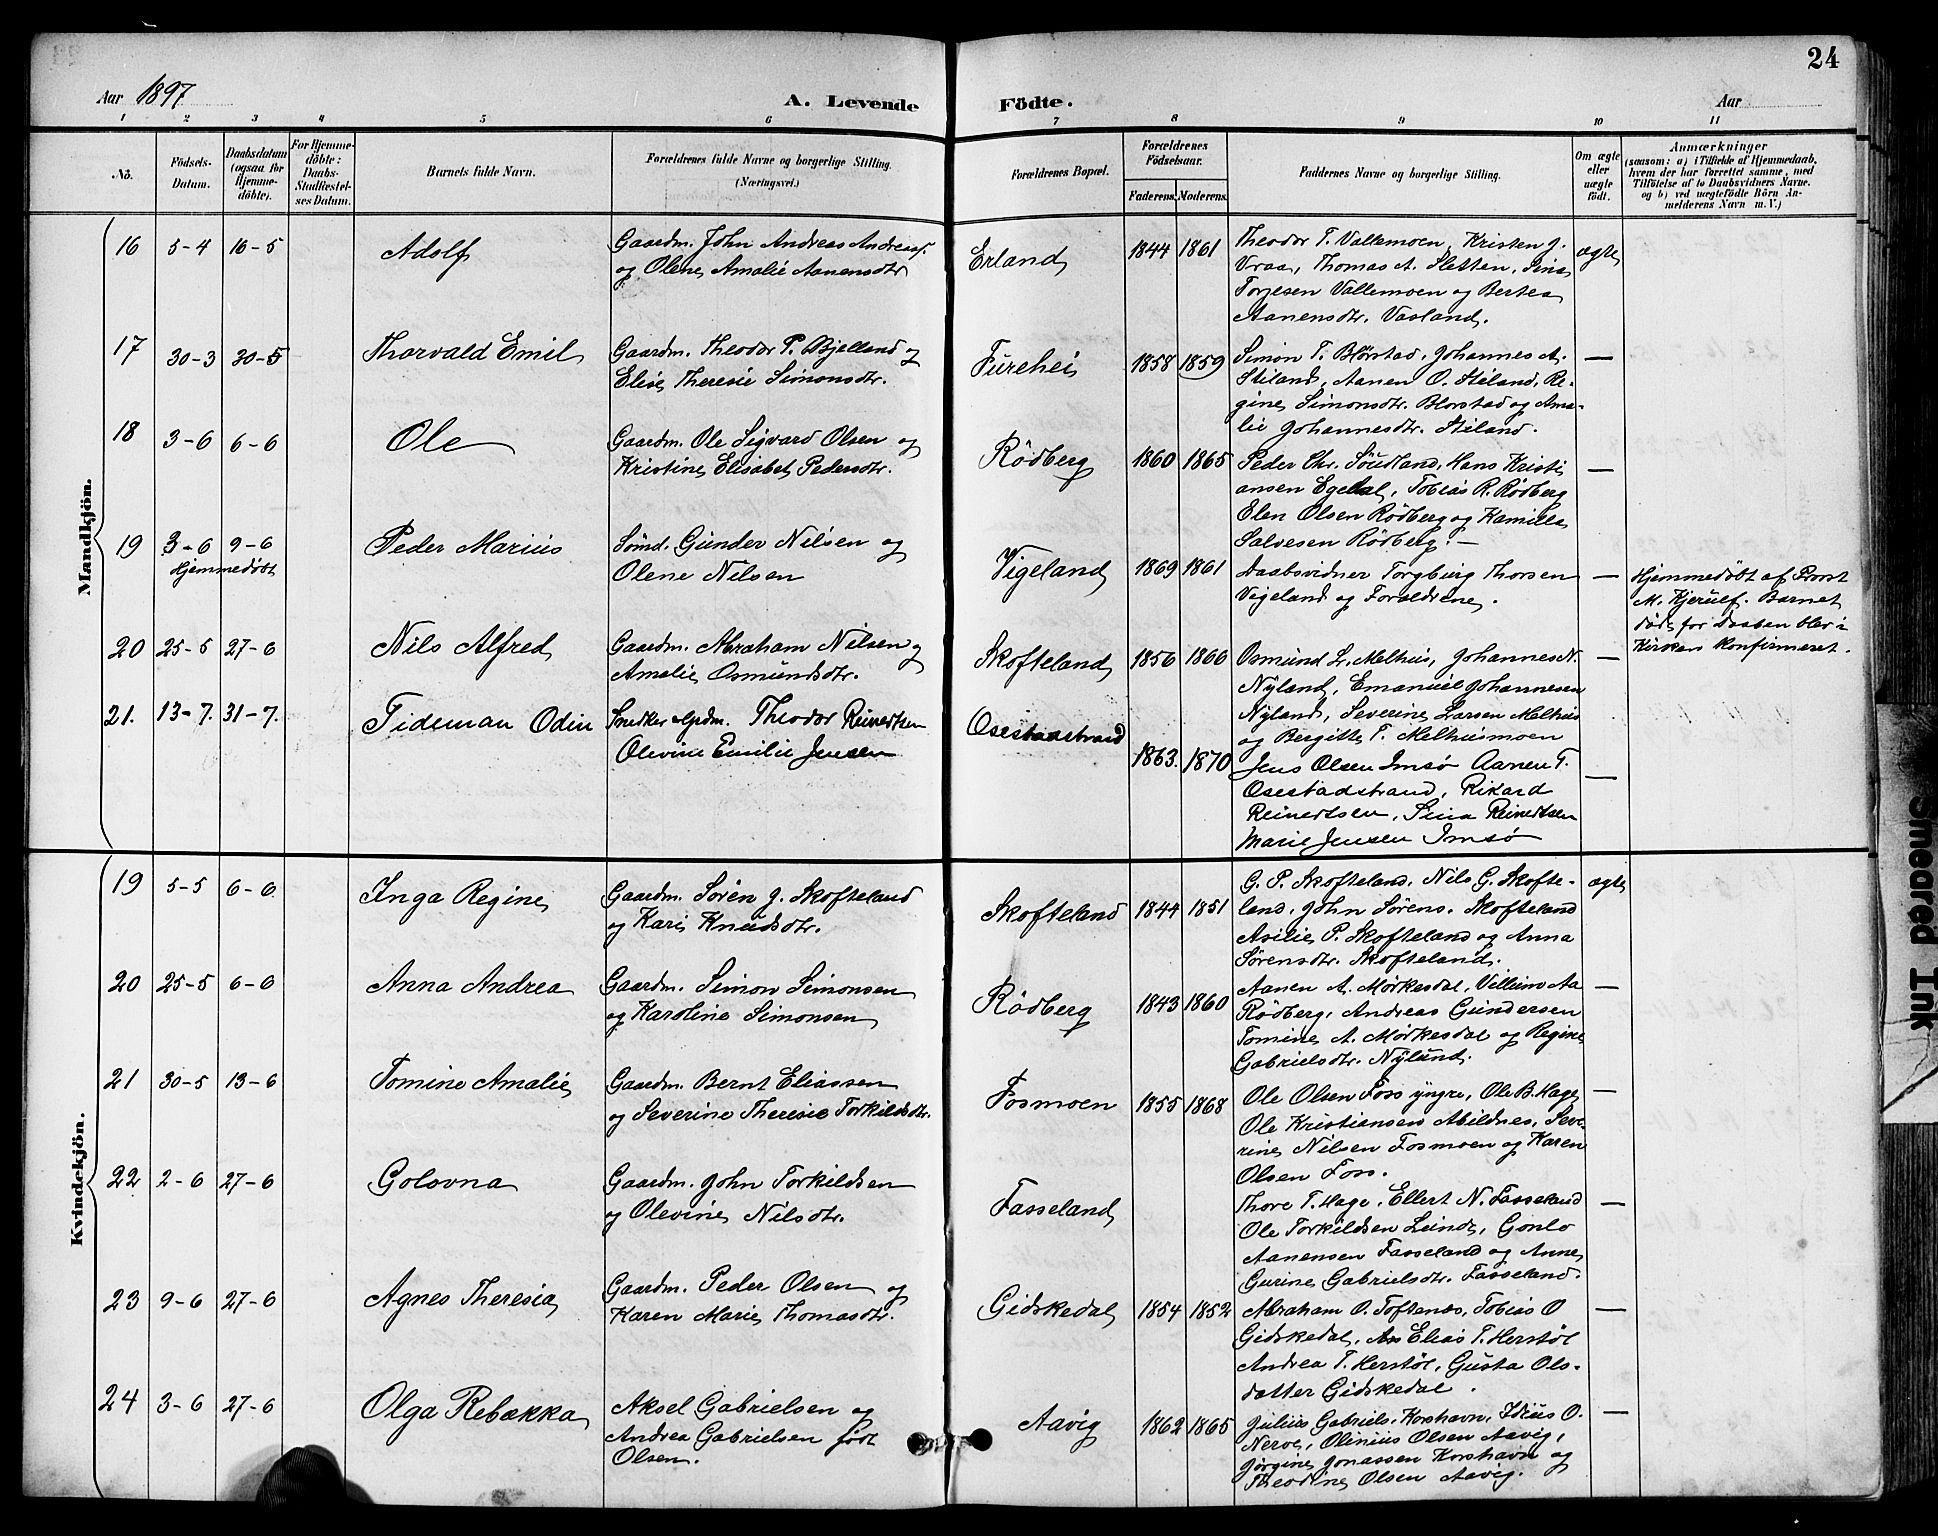 24
Aar 1897
A. Levende Födte.
Aar
1 2 3 4 5 6 7 8 9 10 11
Nö.
Födsels-Datum.
Daabsdatum (ogsaa for Hjemme-döbte).
For Hjemme-döbte: Daabs-Stadfæstel-ses Datum.
Barnets fulde Navn.
Forældrenes fulde Navne og borgerlige Stilling. (Næringsvei.)
Forældrenes Bopæl.
Forældrenes Födselsaar.
Faderens. Moderens.
Faddernes Navne og borgerlige Stilling.
Om ægte eller uægte födt.
Anmærkninger
(saasom: a) i Tilfælde af Hjemmedaab,
hvem der har forrettet samme, med
Tilföielse af to Daabsvidners Navne.
og b) ved uægtefödte Börn An-
melderens Navn m. V.)
Mandkjön.
16 5-4 16-5 Adolf
Gaardm. John Andreas Andreass.
og Olene Amalie Aanensdtr
Erland 1844 1861
Theodor T. Vallemoen, Kristen J.
Vraa, Thomas A. Sletten, Sina
Torjesen Vallemoen og Bertea
Aanensdtr. Vasland.
ægte
17 30-3 30-5 Thorvald Emil
Gaardm. Theodor P. Bjelland og
Elise Theresie Simonsdtr.
Furehei 1858 1859
Simon T. Blörstad, Johannes A.
Stiland, Aanen O. Stiland, Re-
gine Simonsdtr. Blorstad og Ama-
lie Johannesdtr. Stiland.
—
18 3-6 6-6 Ole
Gaardm. Ole Sigvard Olsen og
Kristine Elisabet Pedersdtr.
Rödberg 1860 1865
Peder Chr. Söudland, Hans Kristi
ansen Egedal, Tobias R. Rödberg
Elen Olsen Rödberg og Kamilla
Salvesen Rödberg. —
—
19 3-6 9-6 Peder Marius
Hjemmedöbt
Sömd. Gunder Nilsen og
Olene Nilsen
Vigeland 1869 1861
Daabsvidner Torgburg Thorsen
Vigeland og Foraldrene.
—
Hjemmedöbt af Provst
M. Kjerulf. Barnet
döde för Daaben blev i
Kirken konfirmeret.
20 25-5 27-6 Nils Alfred
Gaardm. Abraham Nilsen og
Amalie Osmundsdtr.
Skofteland 1856 1866
Osmund L. Melhus, Johannes N.
Nyland, Emanuel Johannesen
Nyland, Severine Larsen Melhus
og Bergitte T. Melhusmoen
—
21. 13-7. 31-7. Tideman Odin
Snedker & Grdm. Theodor Reinertsen
Olevine Emilie Jensen
Osestadstrand 1863. 1870
Jens Olsen Imsø Aanen T.
Osestadstrand, Rikard
Reinertsen, Sina Reinertsen
Marie Jensen Imsø
—
Kvindekjön.
19 5-5 6-6 Inga Regine
Gaardm. Sören J. Skofteland
og Kari Knudsdtr.
Skofteland 1844 1851
G. P. Skofteland, Nils G. Skofte-
land, John Sörens. Skofteland
Asilie P. Skofteland og Anna
Sörensdtr. Skofteland.
ægte
20 25-5 6-6 Anna Andrea
Gaardm. Simon Simonsen
og Karoline Simonsen
Rödberg 1843 1860
Aanen A. Mörkesdal, Villum Aa
Rödberg, Andreas Gundersen
Tomine A. Mörkesdal og Regine
Gabrielsdtr. Nylund.
—
21 30-5 13-6 Tomine Amalie
Gaardm. Bernt Eliassen
og Severine Theresie Torkildsdtr.
Fosmoen 1855 1868
Ole Olsen Foss yngre, Ole B. Hage
Ole Kristiansen Abildnes, Seve-
rine Nilsen Fosmoen og Karen
Olsen Foss.
—
22 2-6 27-6 Golovna
Gaardm. John Torkildsen
og Olevine Nilsdtr.
Fasseland
Thore T. Hage, Ellert N. Fasseland
Ole Torkildsen Lunde, Gonlo
Aanensen Fasseland og Anne
Gurine Gabrielsdtr. Fasseland.
—
23 9-6 27-6 Agnes Theresia
Gaardm. Peder Olsen og
Karen Marie Thomasdtr.
Gidskedal 1854 1852
Abraham O. Toftenes, Tobias O
Gidskedal, Elias T. Herstöl
Andrea T. Herstöl, Gusta Ols-
datter Gidskedal.
—
24 3-6 27-6 Olga Rebekka
Aksel Gabrielsen og
Andrea Gabrielsen födt
Olsen.
Aavig 1862 1865
Julius Gabriels. Korshavn, Idius O.
Nerve, Olinius Olsen Aavig,
Jörgine Jonassen Korshavn og
Theodine Olsen Aavig.
—
Smeared Ink